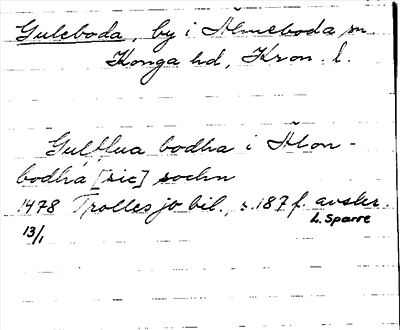 Guleboda, by i Älmeboda sn.
Konga hd, Kron. l.
Gulblua bodha i Älon-
bodha [sic] sochn
1478 Trolles jb bil., s. 187 f. avskr.
L. Sparre
13/1